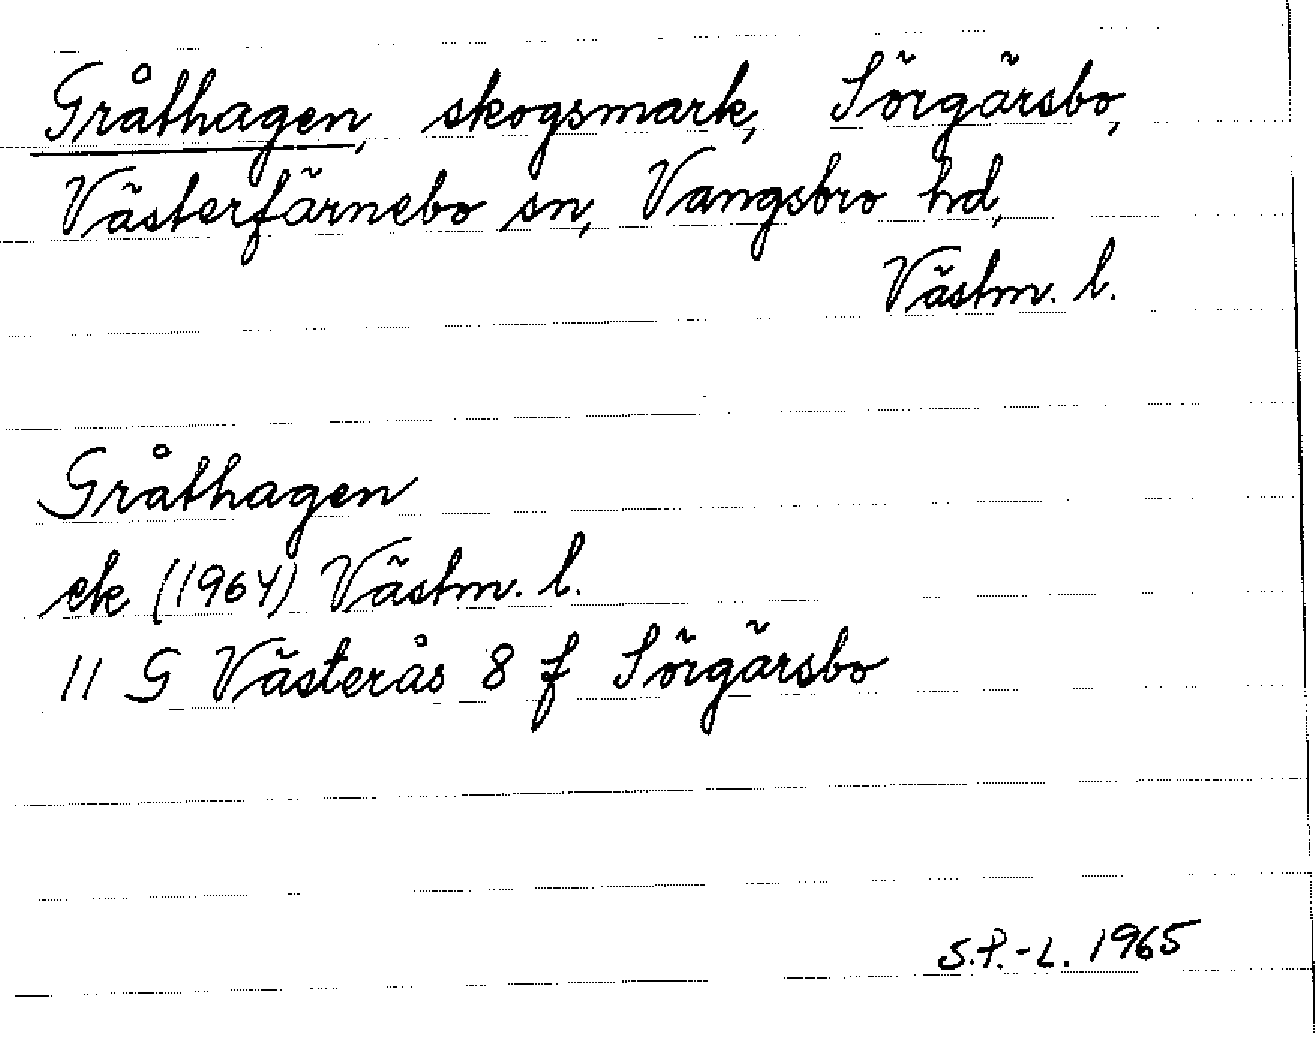 Gråthagen, skogsmark, Sörgärsbo,
Västerfärnebo sn, Vangsbro hd,
Västm. l.
Gråthagen
ek (1964) Västm. l.
11 G Västerås 8 f Sörgärsbo
S.P.-L. 1965